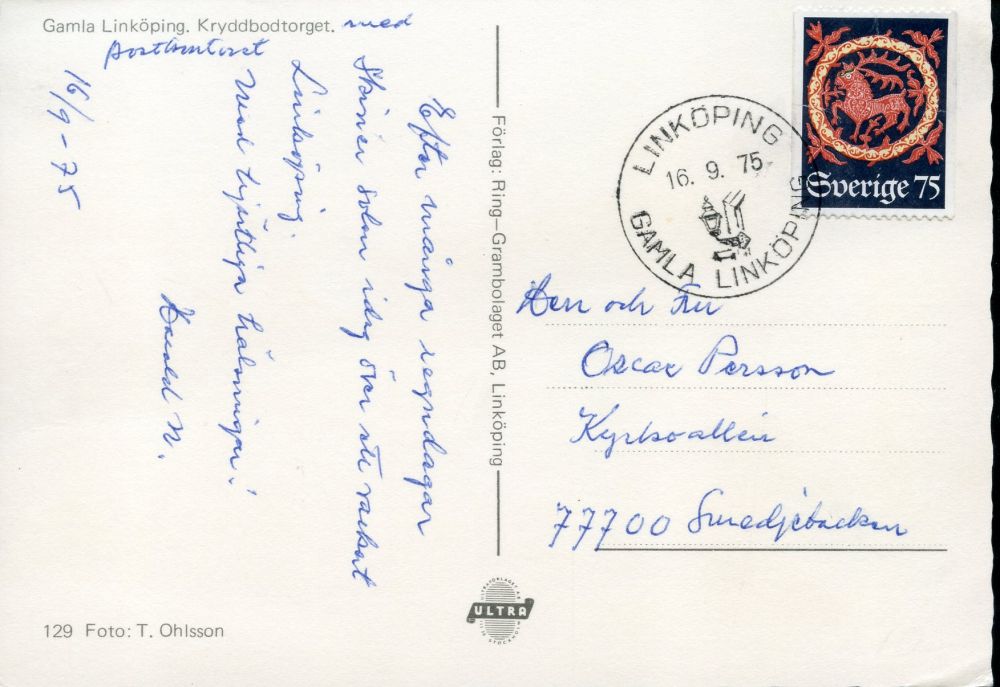 Gamla Linköping. Kryddbodtorget. med
postkontoret
16/9-75
Efter många regndagar
skiner solen idag över ett vackert
Linköping.
Med hjärtliga hälsningar!
Harald N.
Förlag: Ring–Grambolaget AB, Linköping
LINKÖPING
16. 9. 75
GAMLA LINKÖPING
Sverige 75
Herr och Fru
Oscar Persson
Kyrkoallén
77700 Smedjebacken
ULTRA
129 Foto: T. Ohlsson